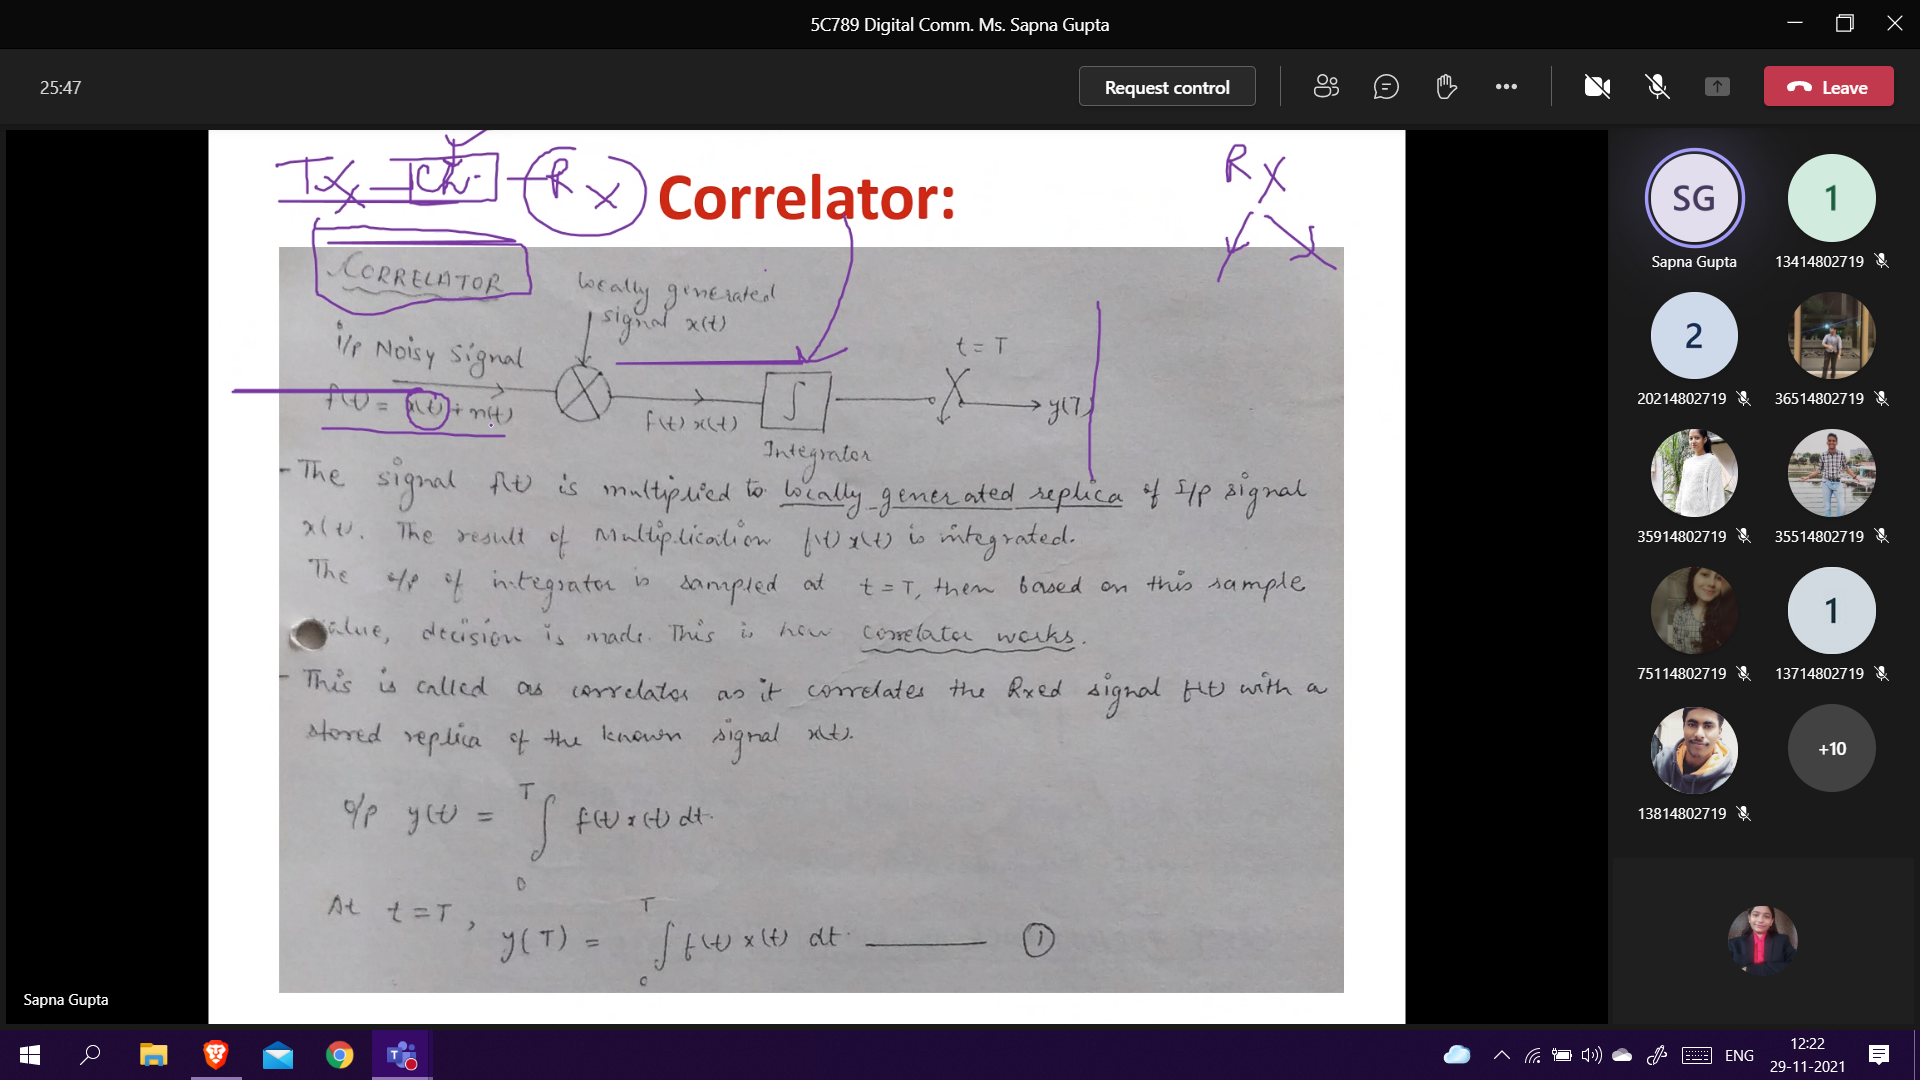 5C789 Digital Comm. Ms. Sapna Gupta
25:47
Request control
Leave
Tx Ch. Rx
Correlator:
Rx
CORRELATOR
locally generated
signal x(t)
i/p Noisy signal
t = T
f(t) = x(t) + n(t)
f(t) x(t)
∫
y(T)
Integrator
- The signal f(t) is multiplied to locally generated replica of I/p signal
x(t). The result of Multiplication f(t) x(t) is integrated.
The o/p of integrator is sampled at t = T, then based on this sample
value, decision is made. This is how correlator works.
- This is called as correlator as it correlates the Rxed signal f(t) with a
stored replica of the known signal x(t).
o/p y(t) = ∫ 0 T f(t) x(t) dt.
At t = T,
y(T) = ∫ 0 T f(t) x(t) dt. ——— ①
Sapna Gupta
SG
Sapna Gupta
1
13414802719
2
20214802719
36514802719
35914802719
35514802719
75114802719
1
13714802719
13814802719
+10
ENG
12:22
29-11-2021